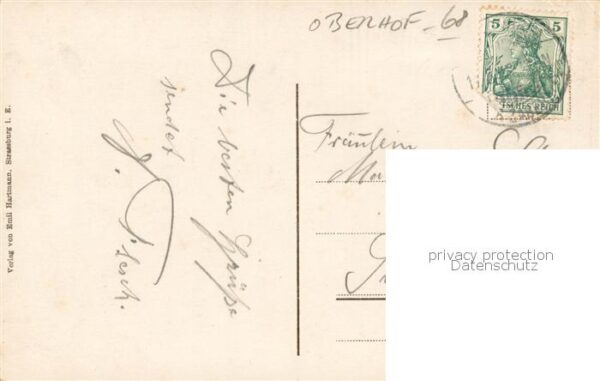 OBERHOF - 68
5 5
DEUTSCHES REICH
Die besten Grüße
sendet
Fräulein
privacy protection
Datenschutz
Verlag von Emil Hartmann, Strassburg i. E.